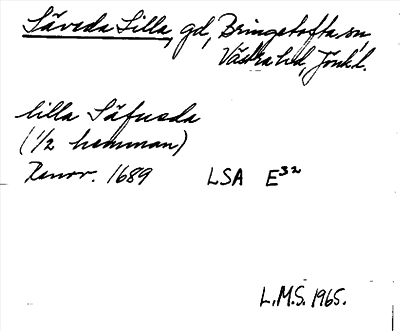 Säveda Lilla, gd, Bringetofta sn,
Västra hd, Jönk.l.
lilla Säfueda
(1/2 hemman)
Renov. 1689 LSA E³²
L.M.S. 1965.